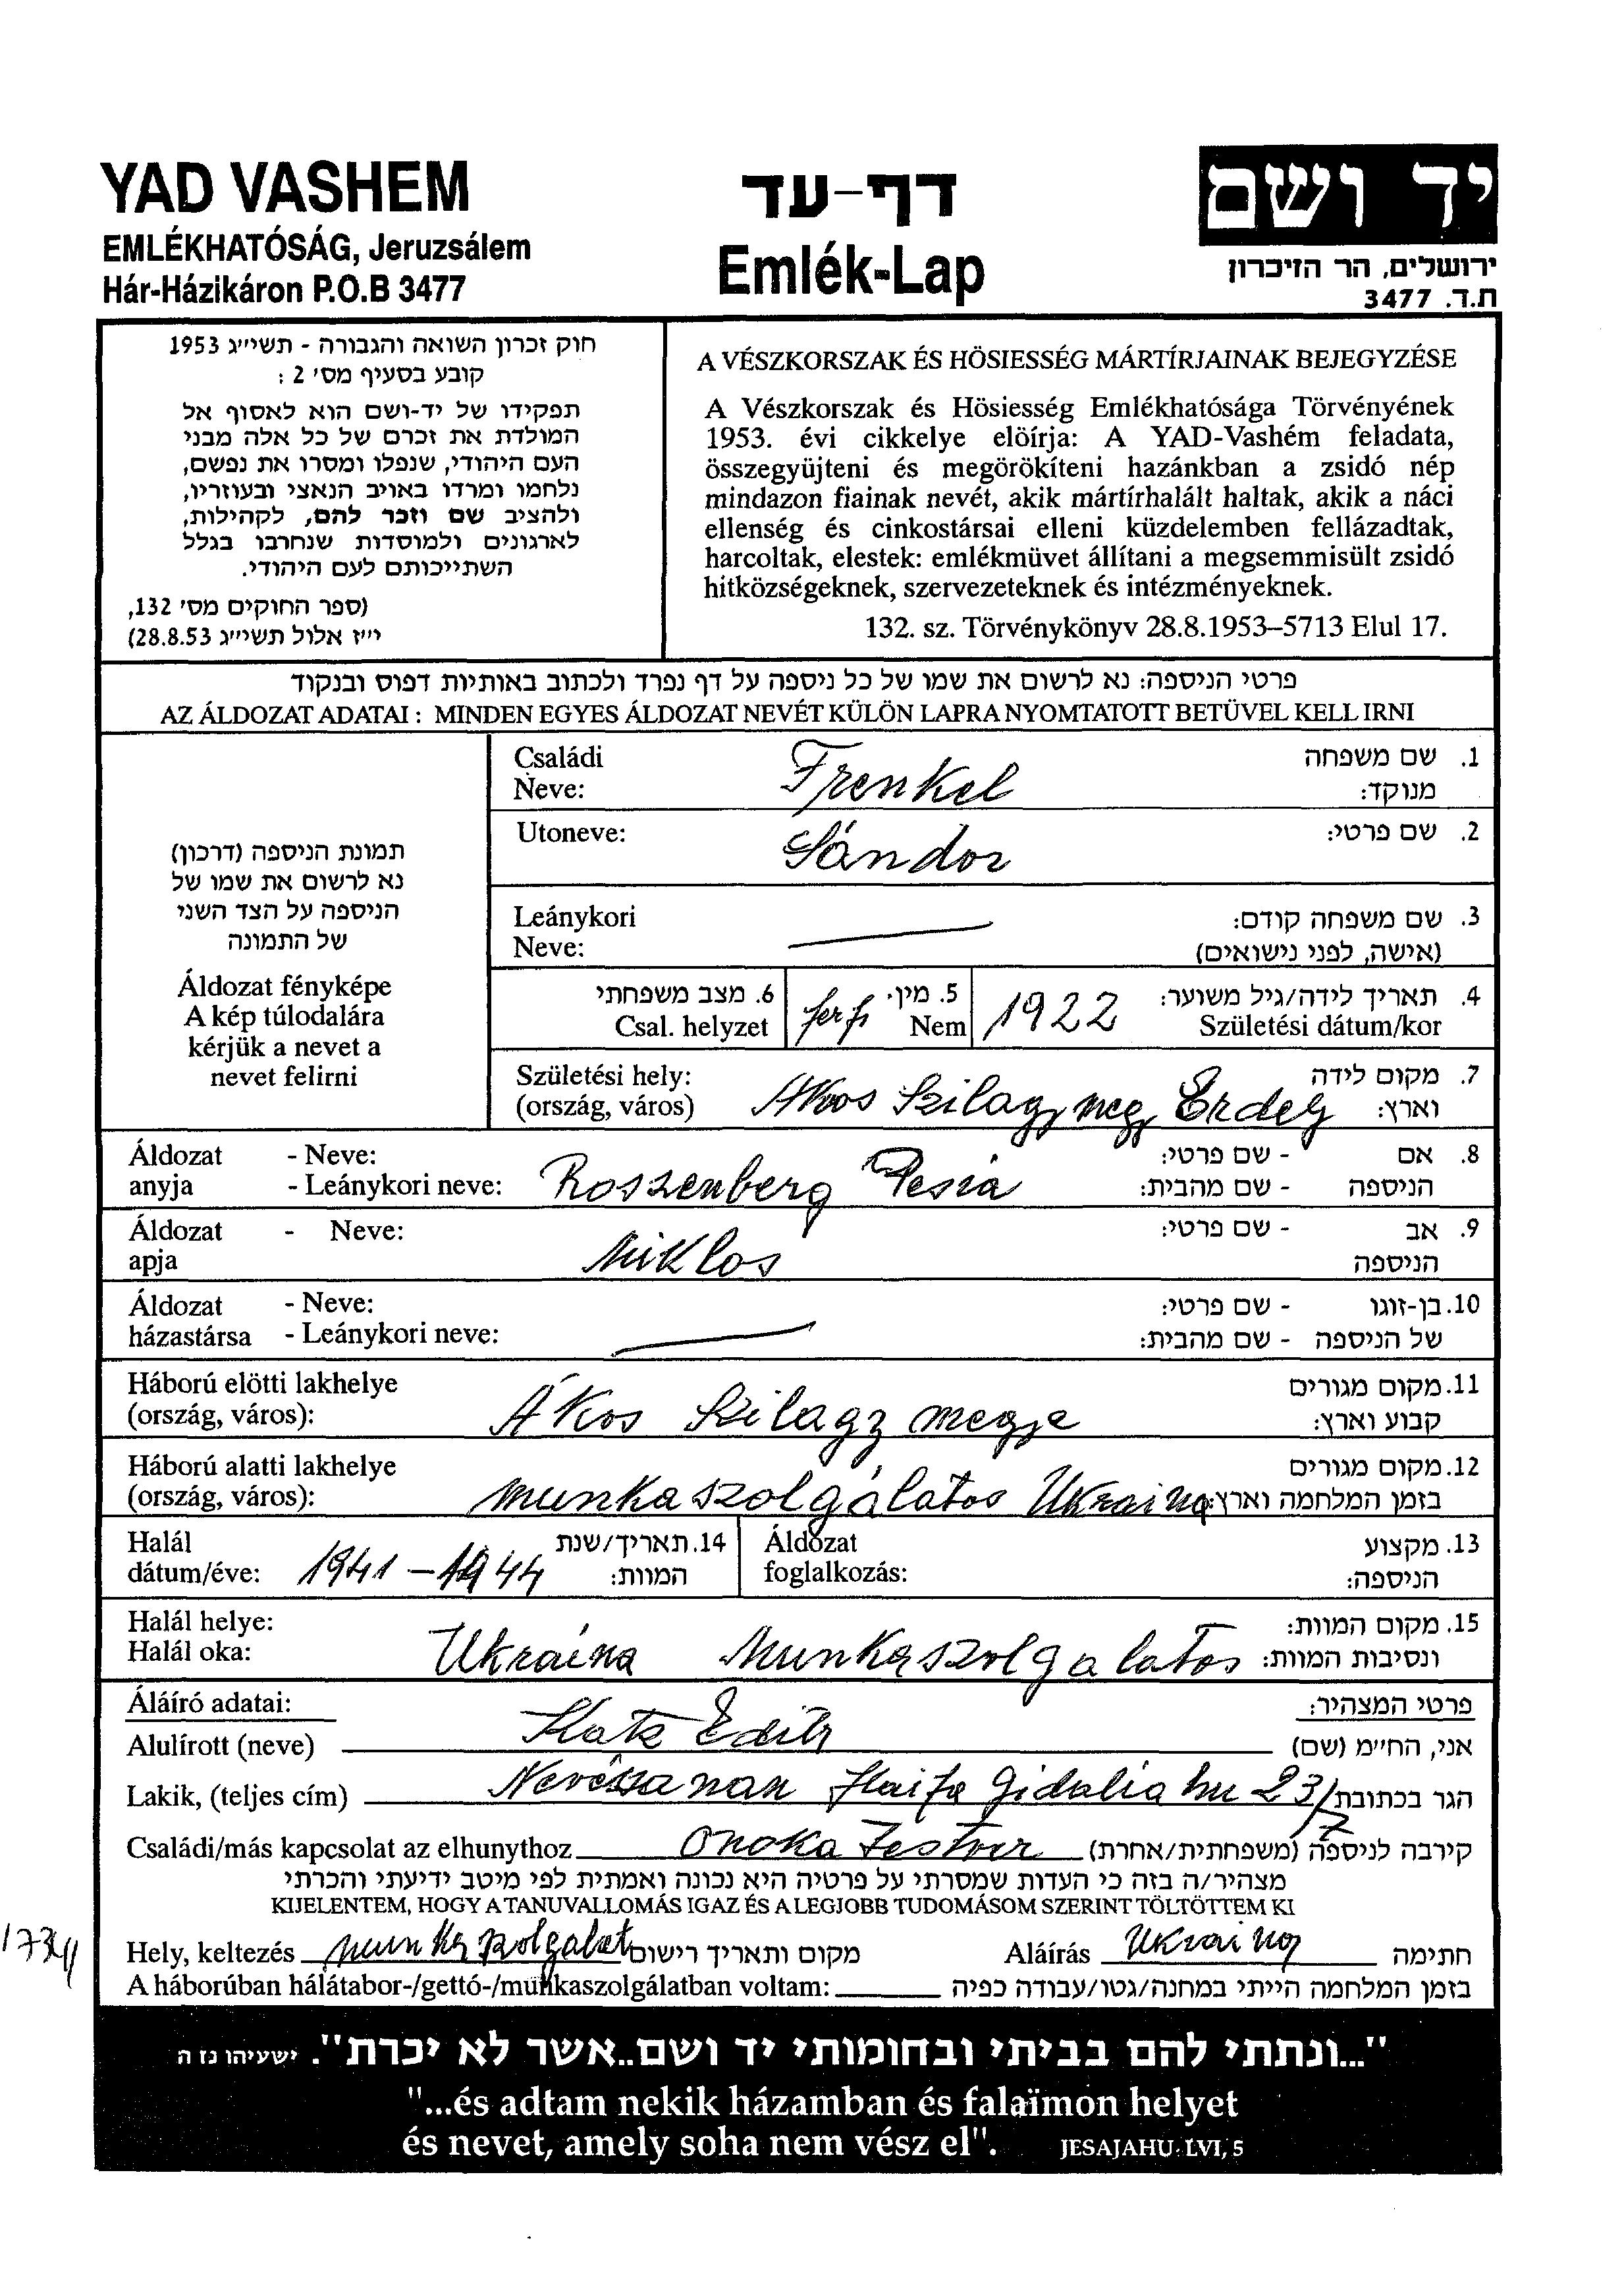 YAD VASHEM
EMLÉKHATÓSÁG, Jeruzsálem
Hár-Házikáron P.O.B 3477
דף-עד
Emlék-Lap
יד ושם
ירושלים, הר הזיכרון
ת.ד. 3477
חוק זכרון השואה והגבורה - תשי״ג 1953
קובע בסעיף מס׳ 2 :
תפקידו של יד-ושם הוא לאסוף אל
המולדת את זכרם של כל אלה מבני
העם היהודי, שנפלו ומסרו את נפשם,
נלחמו ומרדו באויב הנאצי ובעוזריו,
ולהציב שם וזכר להם, לקהילות,
לארגונים ולמוסדות שנחרבו בגלל
השתייכותם לעם היהודי.
(ספר החוקים מס׳ 132,
י״ז אלול תשי״ג 28.8.53)
A VÉSZKORSZAK ÉS HÖSIESSÉG MÁRTÍRJAINAK BEJEGYZÉSE
A Vészkorszak és Hösiesség Emlékhatósága Törvényének
1953. évi cikkelye elöírja: A YAD-Vashém feladata,
összegyüjteni és megörökíteni hazánkban a zsidó nép
mindazon fiainak nevét, akik mártírhalált haltak, akik a náci
ellenség és cinkostársai elleni küzdelemben fellázadtak,
harcoltak, elestek: emlékmüvet állítani a megsemmisült zsidó
hitközségeknek, szervezeteknek és intézményeknek.
132. sz. Törvénykönyv 28.8.1953–5713 Elul 17.
פרטי הניספה: נא לרשום את שמו של כל ניספה על דף נפרד ולכתוב באותיות דפוס ובנקוד
AZ ÁLDOZAT ADATAI : MINDEN EGYES ÁLDOZAT NEVÉT KÜLÖN LAPRA NYOMTATOTT BETÜVEL KELL IRNI
תמונת הניספה (דרכון)
נא לרשום את שמו של
הניספה על הצד השני
של התמונה
Áldozat fényképe
A kép túlodalára
kérjük a nevet a
nevet felirni
Családi Neve: Frenkel 1. שם משפחה מנוקד:
Utoneve: Sándor 2. שם פרטי:
Leánykori Neve: 3. שם משפחה קודם: (אישה, לפני נישואים)
6. מצב משפחתי Csal. helyzet ferfi 5. מין. Nem 1922 4. תאריך לידה/גיל משוער: Születési dátum/kor
Születési hely: (ország, város) Akos Szilagy meg Erdely 7. מקום לידה וארץ:
Áldozat anyja - Neve: - Leánykori neve: Roszenberg Pesia 8. אם הניספה - שם פרטי: - שם מהבית:
Áldozat apja - Neve: Miklos 9. אב הניספה - שם פרטי:
Áldozat házastársa - Neve: - Leánykori neve: 10. בן-זוגו של הניספה - שם פרטי: - שם מהבית:
Háború elötti lakhelye (ország, város): Ákos Szilagy megye 11. מקום מגורים קבוע וארץ:
Háború alatti lakhelye (ország, város): munkaszolgálatos Ukraina 12. מקום מגורים בזמן המלחמה וארץ:
Halál dátum/éve: 1941 – 1944 14. תאריך/שנת המוות: Áldozat foglalkozás: 13. מקצוע הניספה:
Halál helye: Halál oka: Ukraina Munkaszolgalatos 15. מקום המוות: ונסיבות המוות:
Áláíró adatai: פרטי המצהיר:
Alulírott (neve) Katz Edith אני, הח״מ (שם)
Lakik, (teljes cím) Haifa Gidalia hu 23/7 הגר בכתובת
Családi/más kapcsolat az elhunythoz Onoka Testver קירבה לניספה (משפחתית/אחרת)
מצהיר/ה בזה כי העדות שמסרתי על פרטיה היא נכונה ואמתית לפי מיטב ידיעתי והכרתי
KIJELENTEM, HOGY A TANUVALLOMÁS IGAZ ÉS A LEGJOBB TUDOMÁSOM SZERINT TÖLTÖTTEM KI
Hely, keltezés munkaszolgalat מקום ותאריך רישום Aláírás Ukraina חתימה
A háborúban hálátabor-/gettó-/munkaszolgálatban voltam: בזמן המלחמה הייתי במחנה/גטו/עבודה כפיה
"...ונתתי להם בביתי ובחומותי יד ושם..אשר לא יכרת". ישעיהו נז ה
"...és adtam nekik házamban és falaïmon helyet
és nevet, amely soha nem vész el". JESAJAHU: LVI, 5